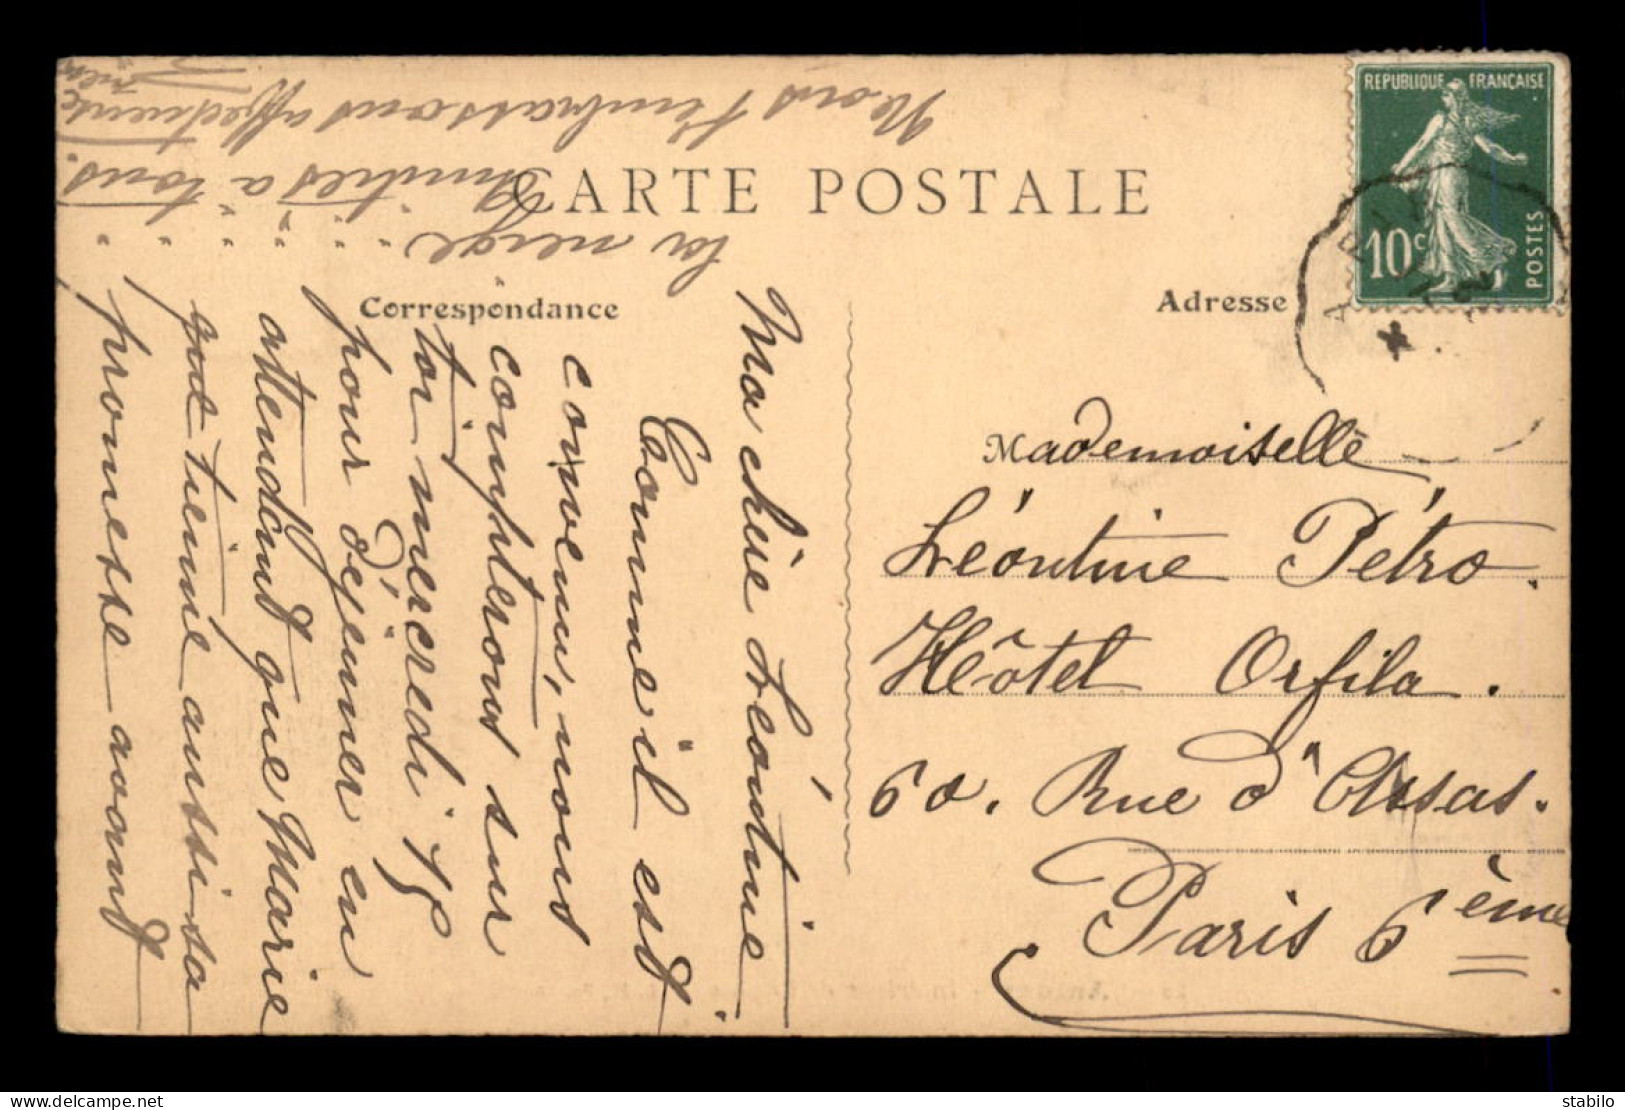 CARTE POSTALE
Correspondance
Adresse
REPUBLIQUE FRANÇAISE
10c
POSTES
Ma chère Léontine
Comme il est
convenu, nous
compterons sur
toi mercredi 15
pour déjeuner en
attendant que Marie
god tienne aussi sa
promesse avant
la neige
Amitiés à tous.
Nous t'embrassons affectueuse
Mademoiselle
Léontine Pétro.
Hôtel Orfila.
60. Rue d'Assas.
Paris 6ème
delcampe.net
stabilo